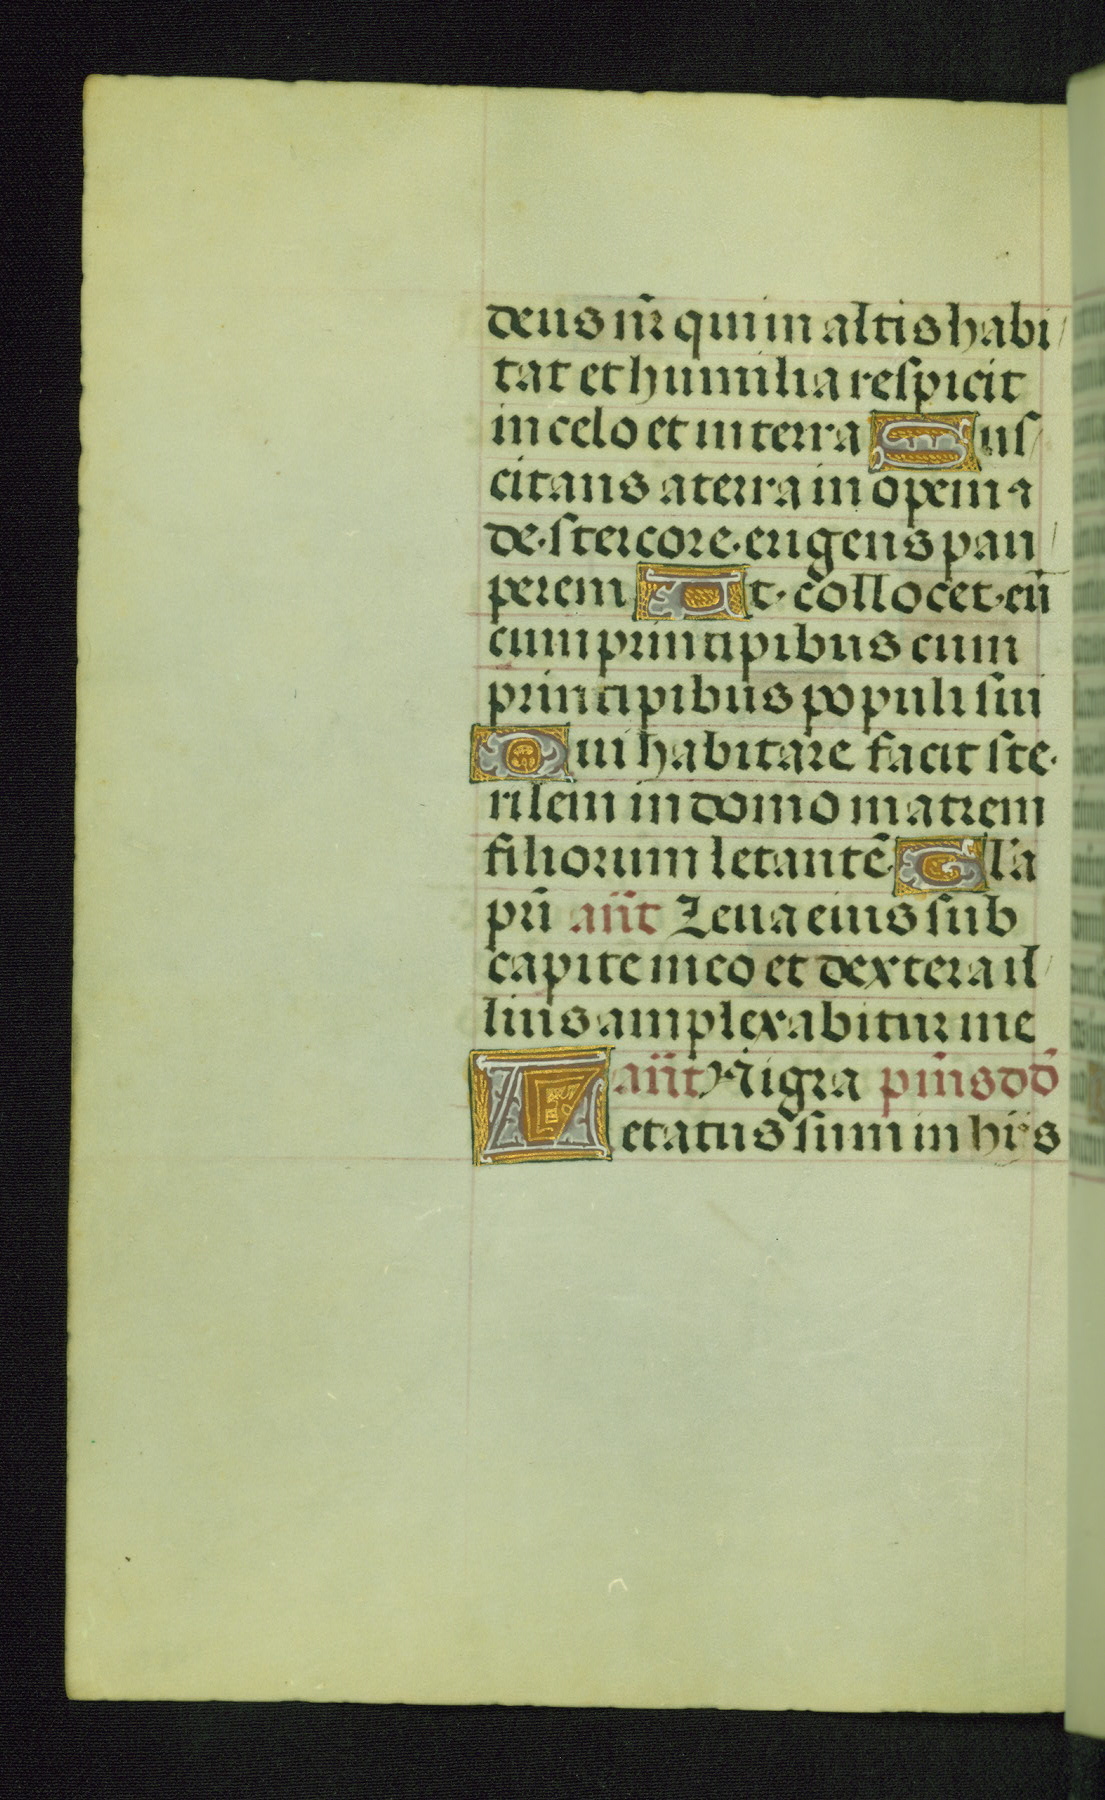 deus nr̃ qui in altis habi
tat et humilia respicit
in celo et in terra Sus
citans a terra inopem a
de·stercore·erigens pau
perem Ut·collocet·eũ
cum principibus cum
principibus populi sui
Qui habitare facit ste·
rilem in domo matrem
filiorum letantẽ· Gl'a
pr̃i añt Leua eius sub
capite meo et dextera il
lius amplexabitur me
añt Nigra psm̃s dd̃
Letatus sum in hiis